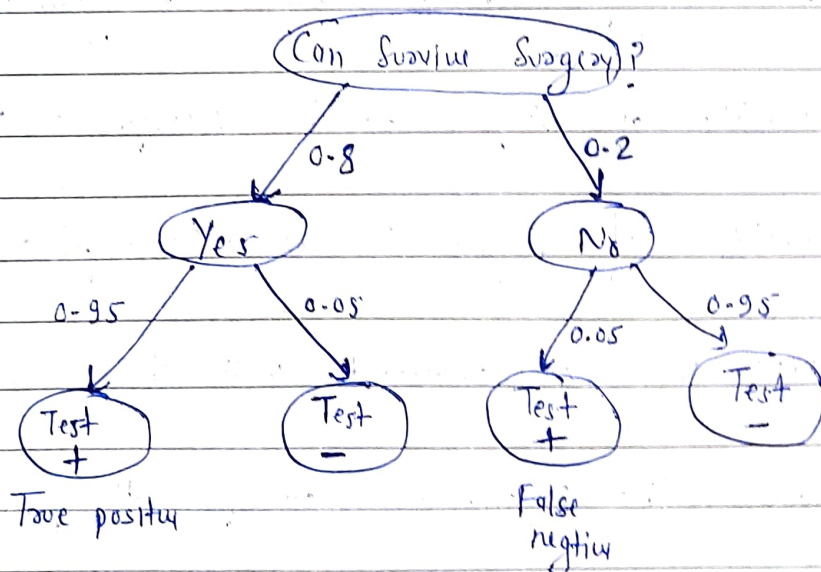 Can Survive Surgery?
0.8
0.2
Yes
No
0.95
0.05
0.05
0.95
Test
+
Test
-
Test
+
Test
-
True positive
False
negtive